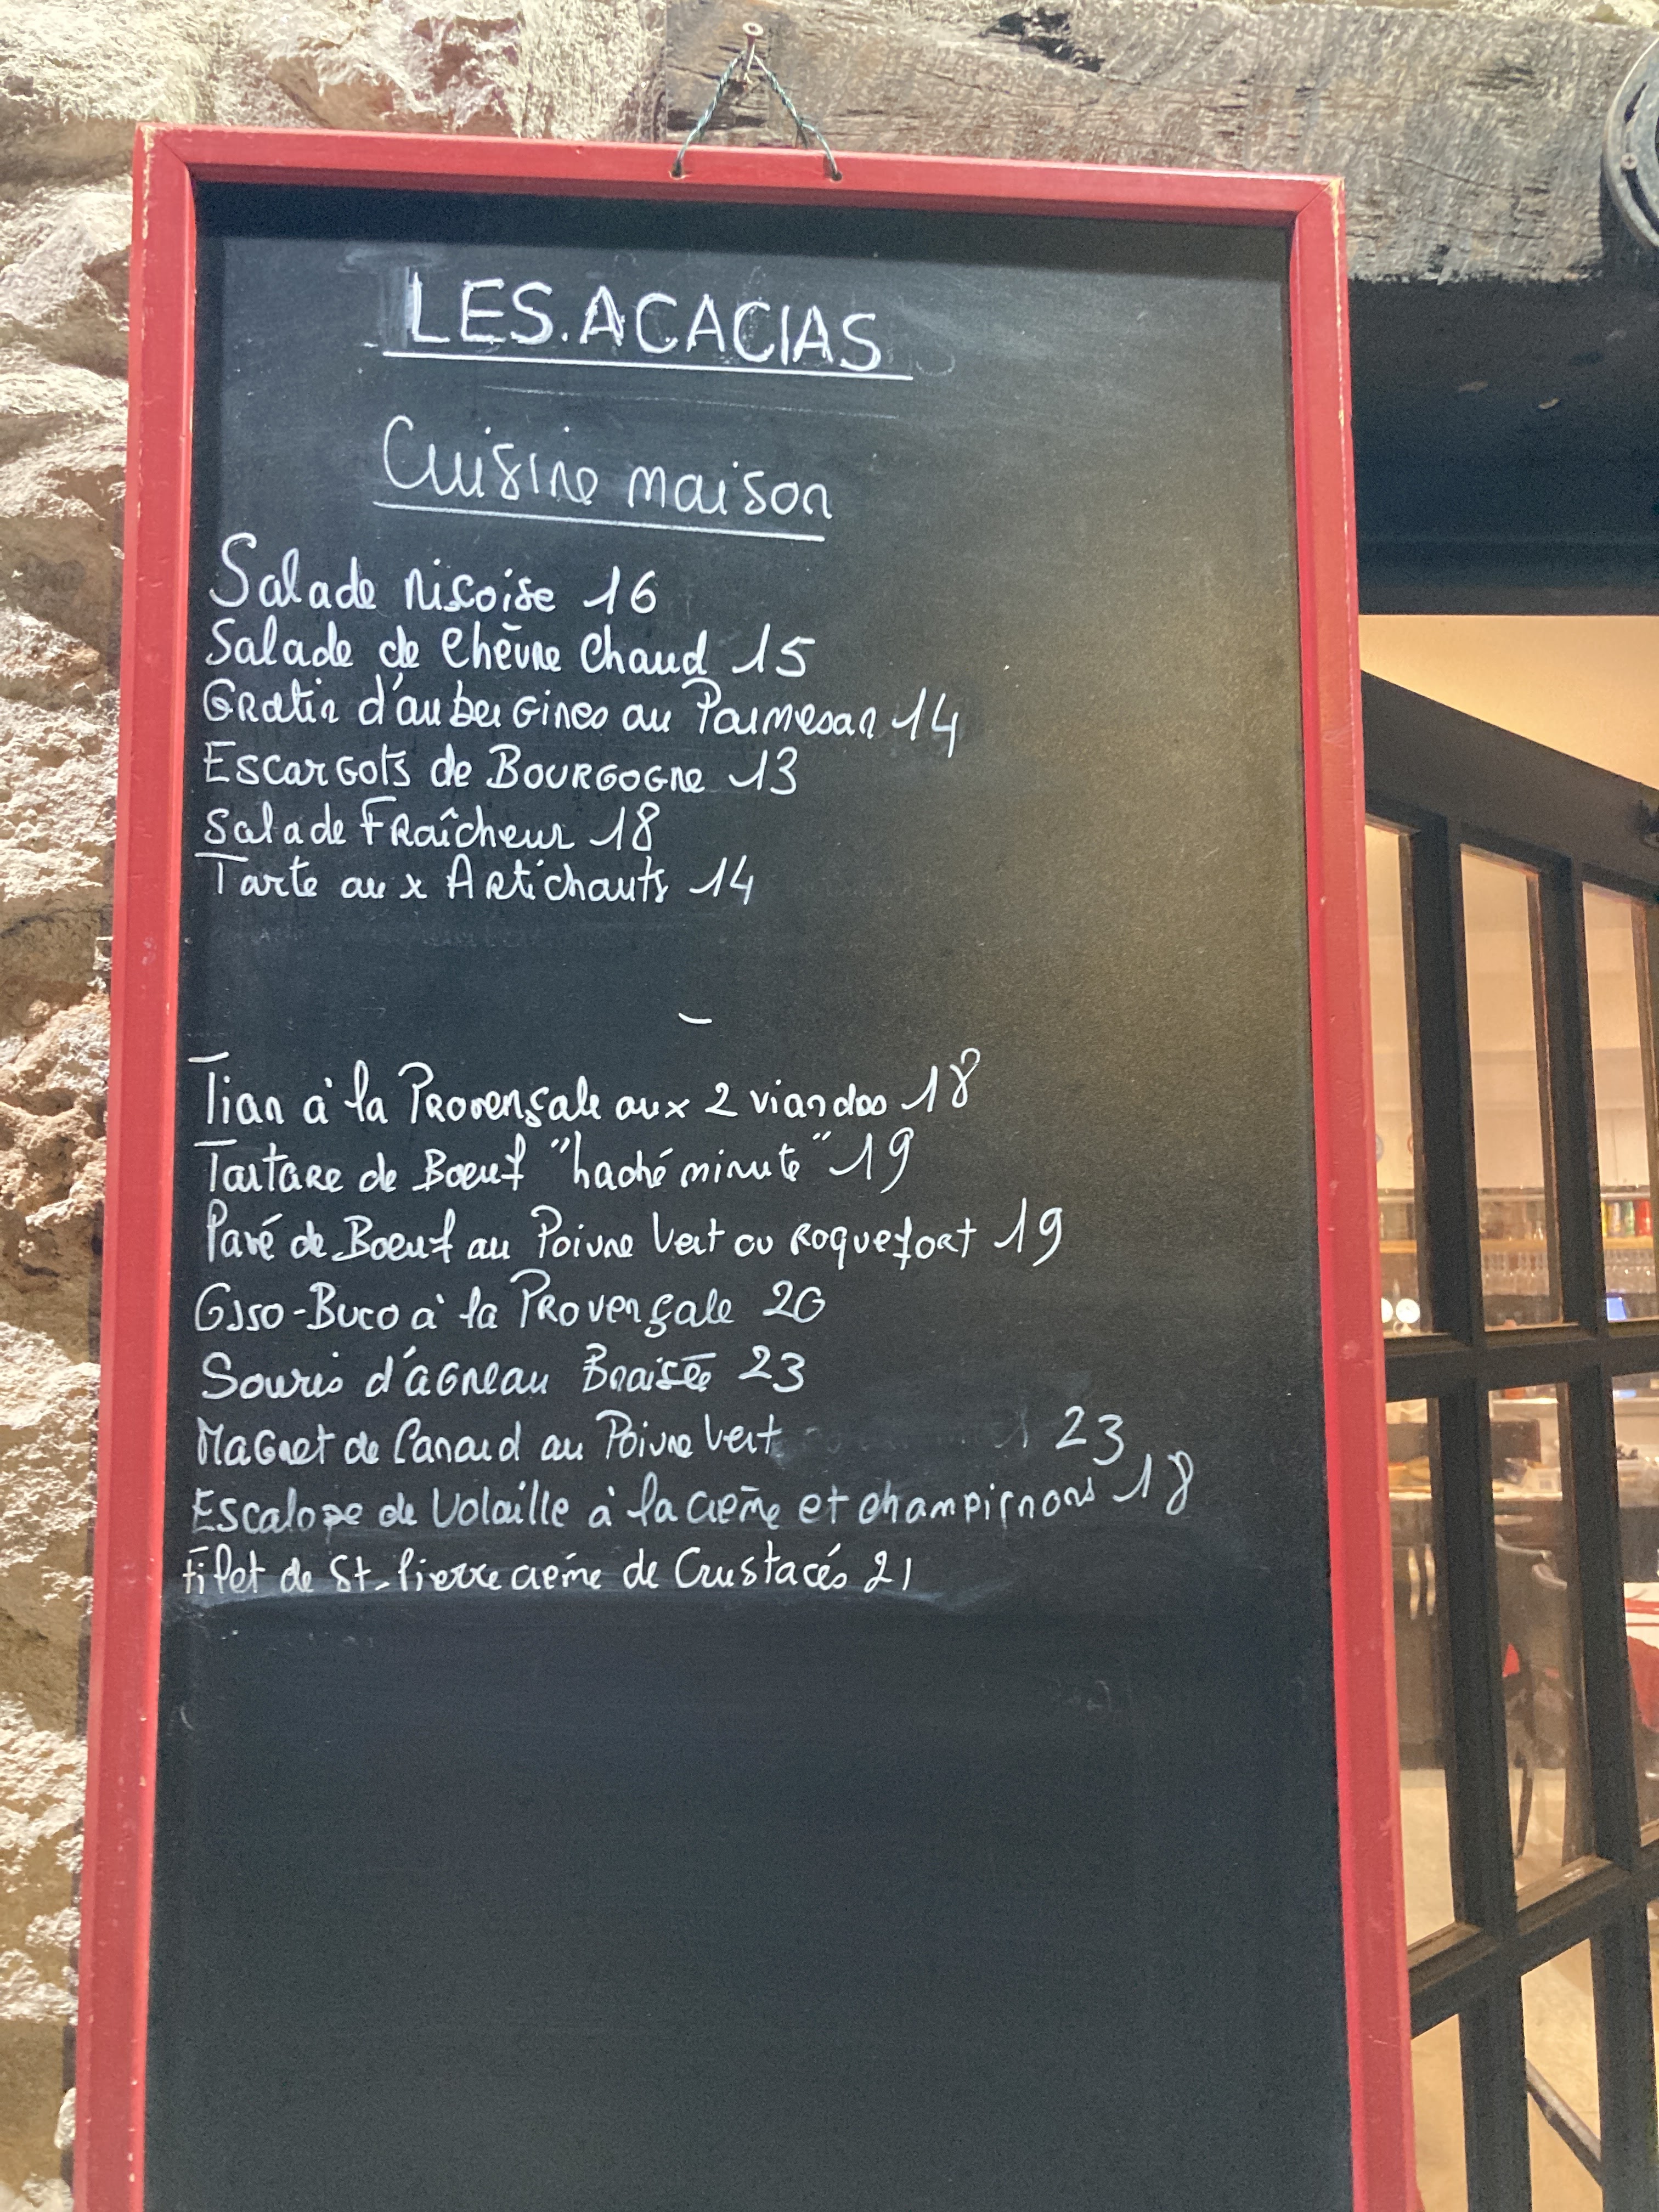 LES.ACACIAS
Cuisine maison
Salade niçoise 16
Salade de Chèvre Chaud 15
Gratin d'aubergines au Parmesan 14
Escargots de BOURGOGNE 13
Salade Fraîcheur 18
Tarte aux Artichauts 14
Tian à la Provençale aux 2 viandes 18
Tartare de Boeuf "haché minute" 19
Pavé de Boeuf au Poivre Vert ou Roquefort 19
Osso-Buco à la Provençale 20
Souris d'agneau Braisée 23
Magret de Canard au Poivre Vert 23
Escalope de Volaille à la crème et champignons 18
Filet de St-Pierre crème de Crustacés 21